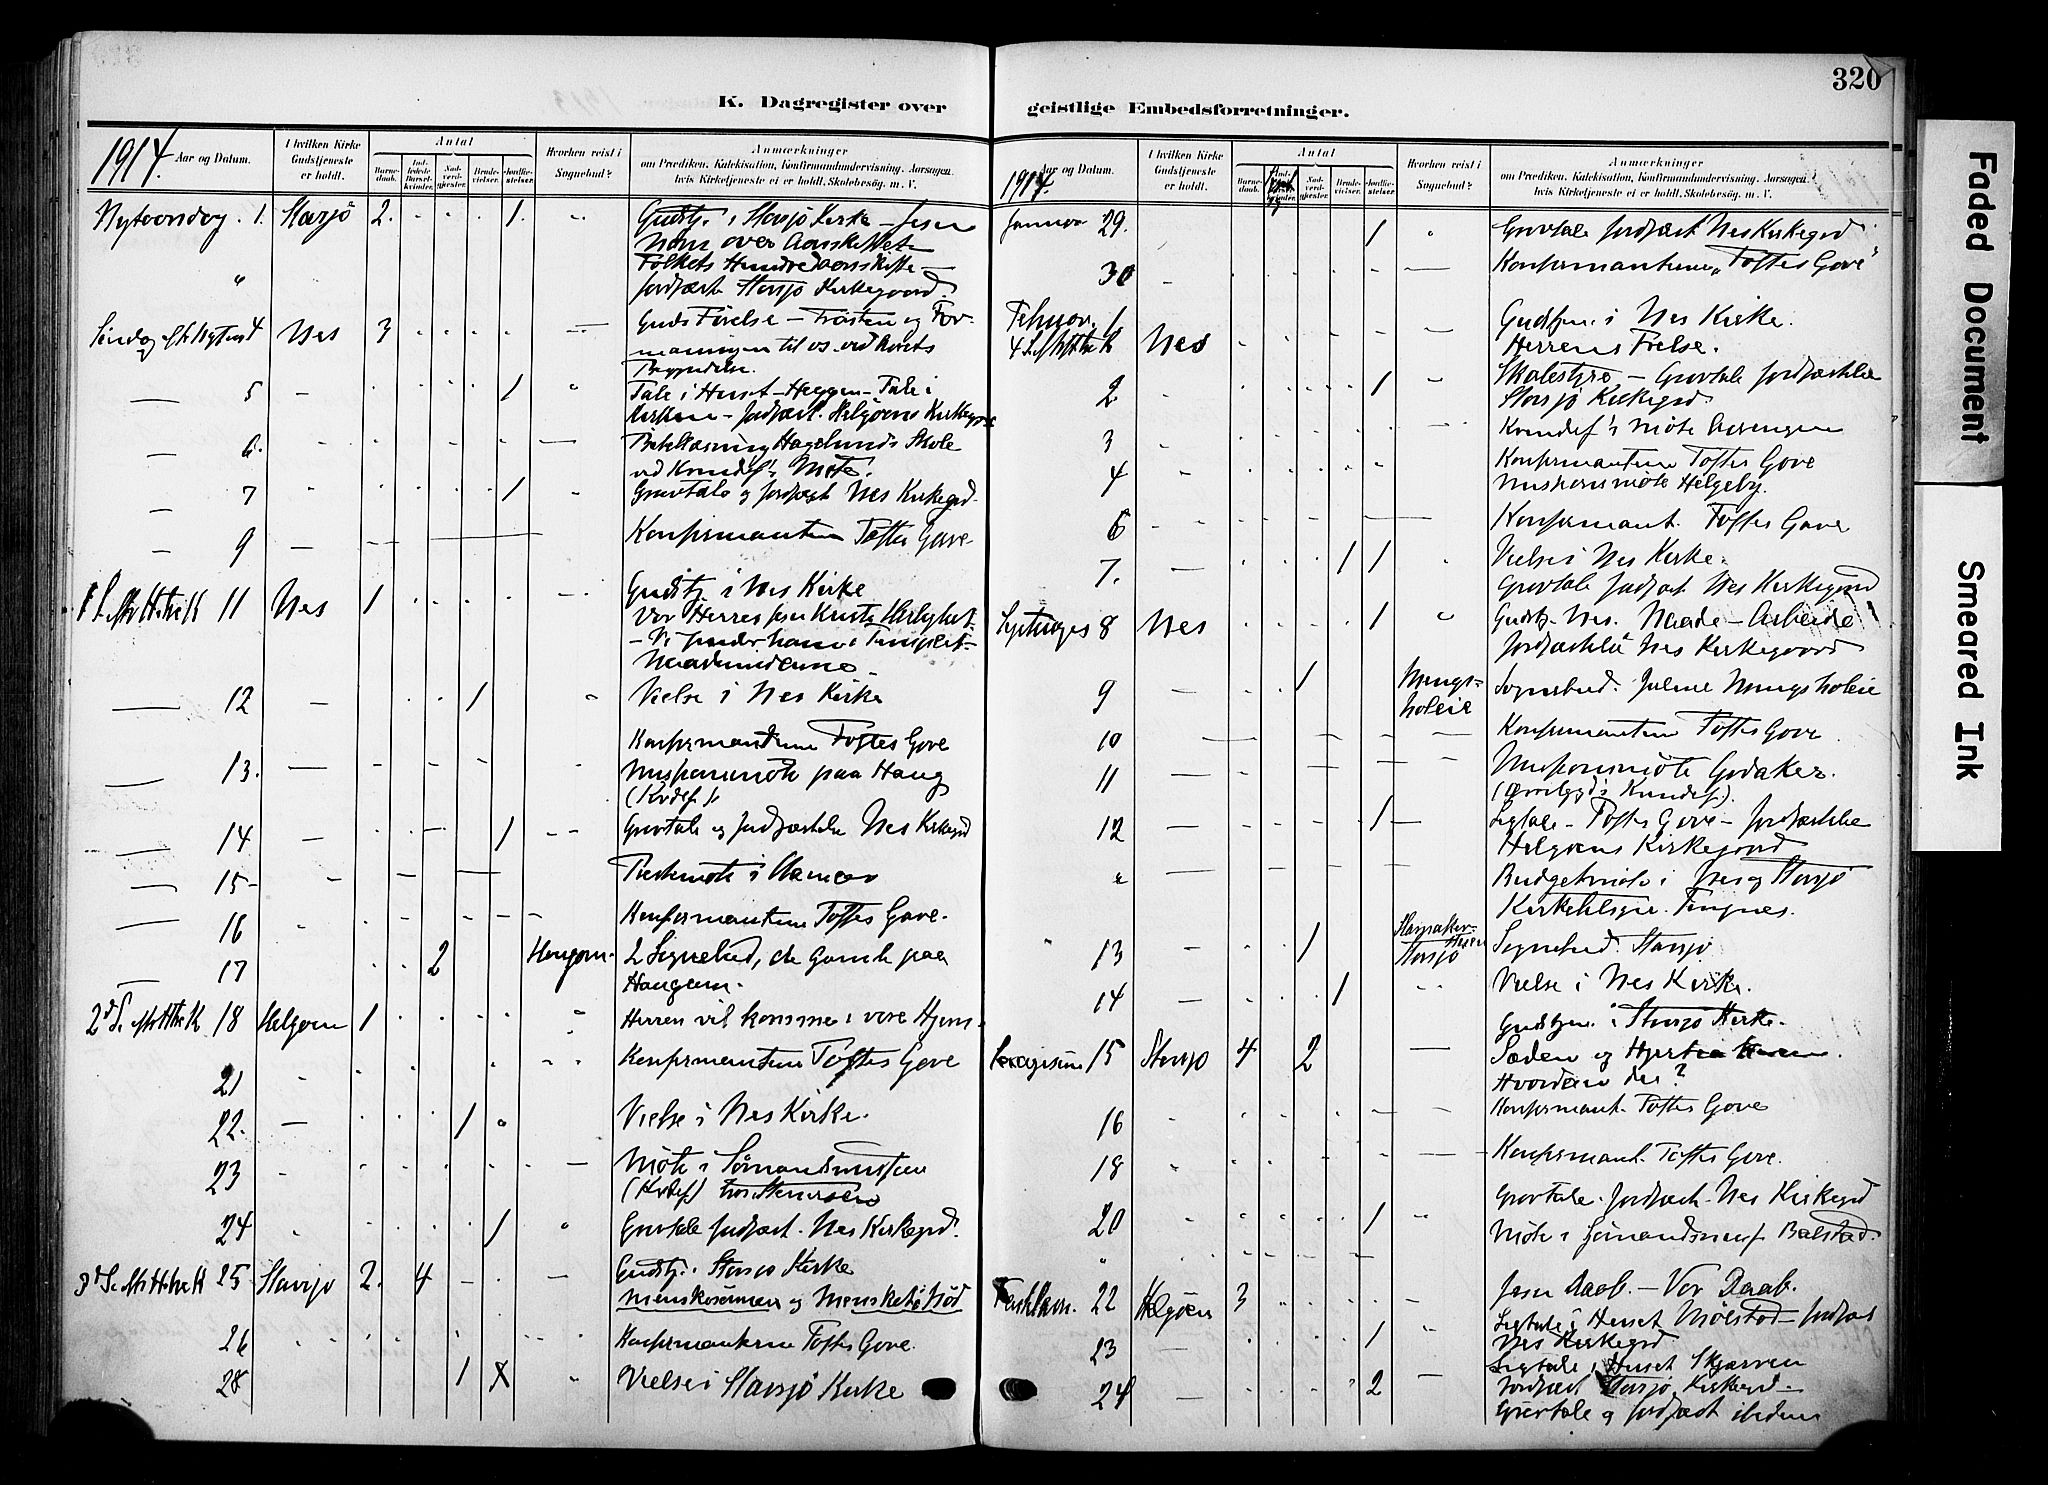 320
K. Dagregister over
geistlige Embedsforretninger.
1914.
Aar og Datum.
I hvilken Kirke Gudstjeneste er holdt.
Antal
Barnedaab.
Indledede Barselkvinder.
Nadverdgjester.
Brudevielser.
Jordfæstelser.
Hvorhen reist i Sognebud?
Anmærkninger
om Prædiken, Katekisation, Konfirmandundervisning, Aarsagen,
hvis Kirketjeneste ei er holdt, Skolebesøg, m. V.
Nytaarsdag. 1. Stavsjø 2. 1. Gudstj. i Stavsjø Kirke – Jesu
Navn over Aarsskiftet
Folkets Hundredaarsskifte –
Jordfæst. Stavsjø Kirkegaard.
Søndag eft. Nytaar 4 Nes 3 Guds Førelse – Trøsten og For-
maningen til os ved Aarets
Begyndelse.
5 1 Tale i Huset – Heggen – Tale i
Kirken – Jordfæst. Helgøens Kirkegrd
6. Bibellæsning Hagelunds Skole
ved Kvindef's Møte.
7 1 Gravtale og Jordfæst Nes Kirkegrd.
9 Konfirmanterne Toftes Gave
1 S. eft. H. tre K 11 Nes 1 Gudstj. i Nes Kirke
Vor Herres Jesu Kristi Herlighet –
– Vi finder ham i Templet –
Naademidlerne
12 1 Vielse i Nes Kirke
Konfirmanterne Toftes Gave
13. Misjonsmøte paa Haug
(Kvdef.).
14 1 Gravtale og Jordfæstelse Nes Kirkegrd
15 Prestemøte i Hamar
16 Konfirmanterne Toftes Gave.
17 2 Haugen. 2 Sognebud, de Gamle paa
Haugen.
2d S. eft. H. tre K 18 Helgøen 1 Herren vil komme i vore Hjem.
21 Konfirmanterne Toftes Gave
22. 1 Vielse i Nes Kirke.
23 Møte i Sømandsmisjon
(Kvdef)
24 1 Gravtale Jordfæst. Nes Kirkegrd.
3d S. eft. H. tre K 25 Stavsjø 2. 4 Gudstj. i Stavsjø Kirke
Menskesønnen og Menskets Nød
26 Konfirmanterne Toftes Gave.
28 1 X Vielse i Stavsjø Kirke
1914.
Aar og Datum.
I hvilken Kirke Gudstjeneste er holdt.
Antal
Barnedaab.
Nadverdgjester.
Brudevielser.
Jordfæstelser.
Hvorhen reist i Sognebud?
Anmærkninger
om Prædiken, Katekisation, Konfirmandundervisning, Aarsagen,
hvis Kirketjeneste ei er holdt, Skolebesøg, m. V.
Januar 29. 1 Gravtale Jordfæst Nes Kirkegrd
30 Konfirmanterne „Toftes Gave"
Februar 1 Gudstjen. i Nes Kirke.
4 S. eft. H. tre K Nes Herrens Frelse.
2 1 Skolestyre – Gravtale Jordfæstelse
Stavsjø Kirkegrd.
3 Kvindef's Møte
4 Konfirmanterne Toftes Gave
Misjonsmøte Helgeby.
6 Konfirmant. Toftes Gave
7. 1 1 Vielse i Nes Kirke.
Gravtale Jordfæst. Nes Kirkegrd
Septuages 8 Nes 1 Gudstj. Nes. Naade – Arbeide
Jordfæstelse Nes Kirkegaard
9 1 Mengs-
holeie Sognebud. Mengsholeie
10 Konfirmanterne Toftes Gave
11 Misjonsmøte Godaker.
12 1 Ligtale – Toftes Gave – Jordfæstelse
Helgøens Kirkegaard
Budgetmøte i Nes og Stavsjø
Kirketilsyn. Tingnes.
13 1 Stavsjø Sognebud. Stavsjø
14 1 Vielse i Nes Kirke.
Gudstjen. i Stavsjø Kirke.
Sexagesima 15 Stavsjø 4 2 Sæden og
Hvordan det?
16 Konfirmant. Toftes Gave
18 Konfirmant. Toftes Gave.
20 1 Gravtale. Jordfæst. Nes Kirkegrd
Møte i Sømandsmisj. Balstad.
Fastelavn. 22 Helgøen 3 Jesu Daab. – Vor Daab.
23 1 Ligtale i Huset Mølstad – Jordfæst
Nes Kirkegrd
24 2 Ligtale i Huset Skjærven
Jordfæst Stavsjø Kirkegrd –
Gravtale og Jordfæst ibidem
Faded Document
Smeared Ink